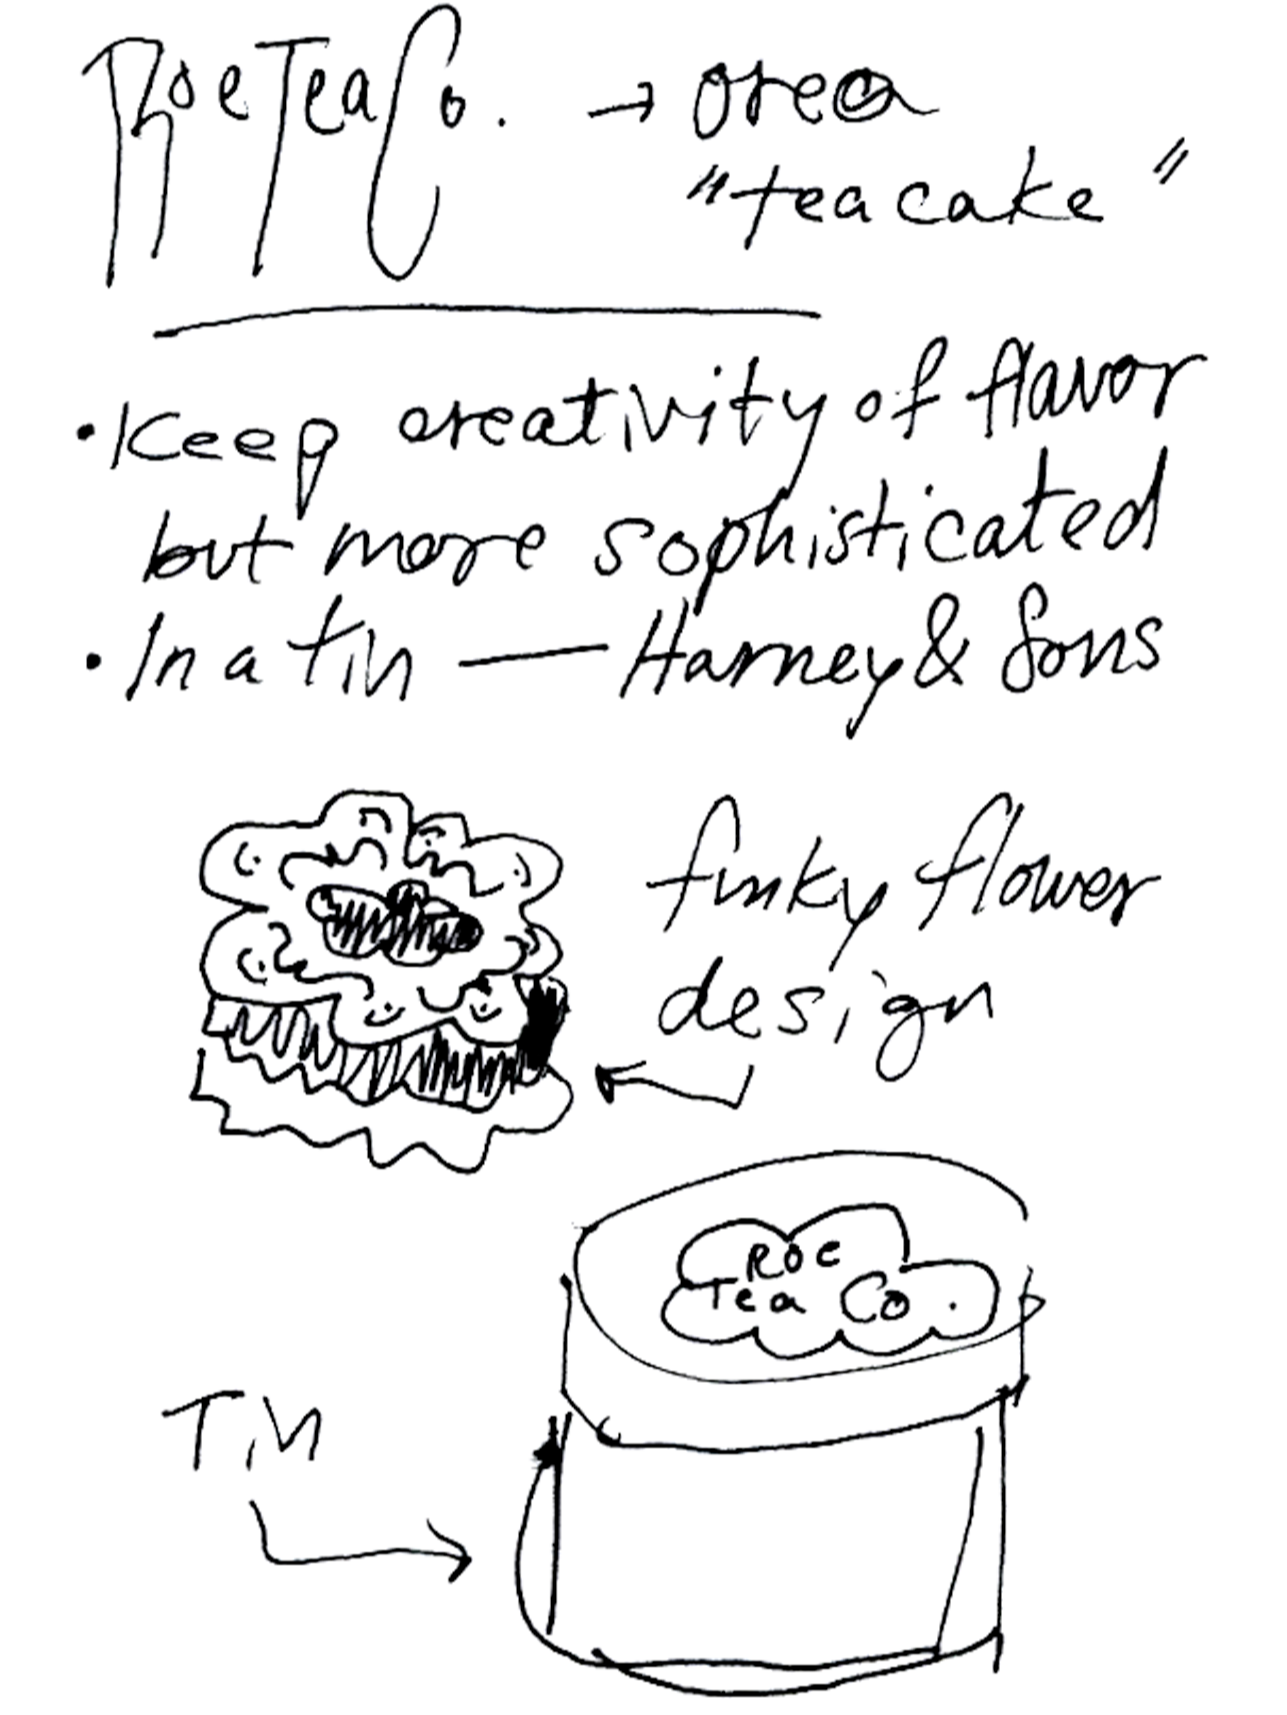 Roe Tea Co. → oreo
"tea cake"
• Keep creativity of flavor
but more sophisticated
• In a tin — Harney & Sons
funky flower
design
Roe
Tea Co.
Tin